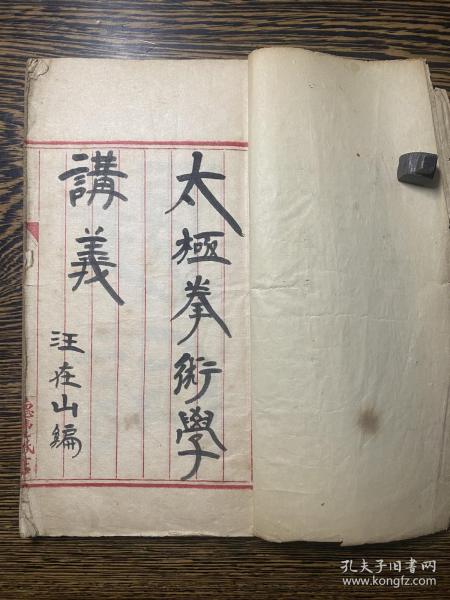 太極拳術學
講義
汪在山編
孔夫子旧书网
www.kongfz.com